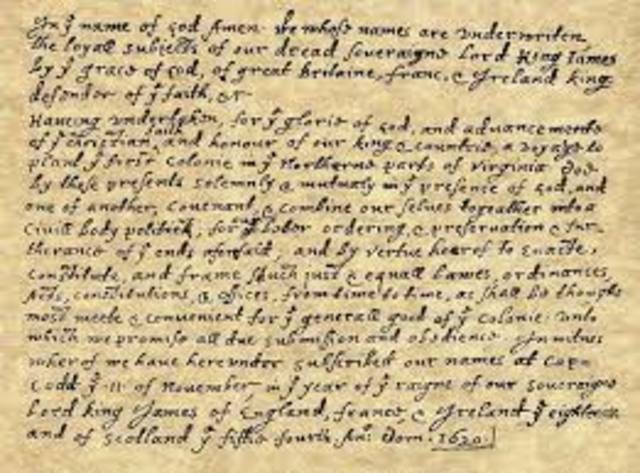 In yͤ name of god Amen. We whose names are underwriten,
the loyall subjects of our dread soveraigne Lord King James
by yͤ grace of God, of great Britaine, franc, & Ireland king,
defendor of yͤ faith, &c
Haveing undertaken, for yͤ glorie of God, and advancemente
of yͤ christian faith and honour of our king & countrie, a voyage to
plant yͤ first colonie in yͤ Northerne parts of Virginia. Doe
by these presents solemnly & mutualy in yͤ presence of God, and
one of another, covenant, & combine our selves togeather into a
Civill body politick, for yͤ better ordering, & preservation & fur-
therance of yͤ ends aforesaid; and by vertue hearof to Enacte,
Constitute, and frame shuch just & equall Lawes, ordinances,
Acts, constitutions, & offices, from time to time, as shall be thought
most meete & convenient for yͤ generall good of yͤ colonie: unto
which we promise all due submission and obedience. In witnes
wherof we have hereunder subscribed our names at Cap=
Codd yͤ ·11· of November, in yͤ year of yͤ raigne of our soveraigne
Lord king James of England, france, & Ireland yͤ eighteen
and of Scotland yͤ fiftie fourth. Anº: Dom. 1620.